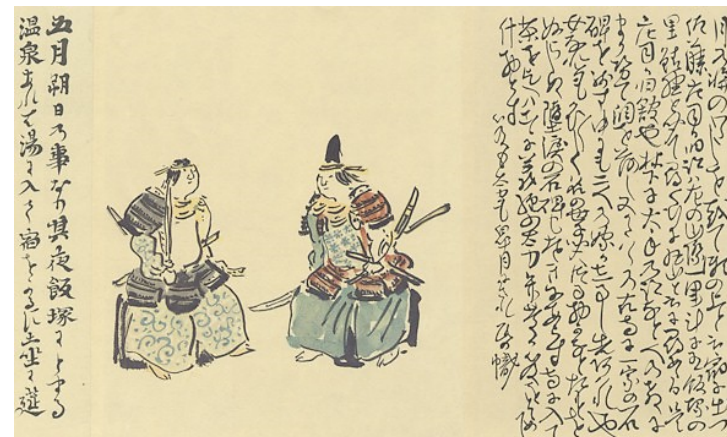 月の輪のわたしを越て瀬の上と云宿に出づ
佐藤庄司が旧跡は左の山際一里半計に有飯塚の
里鯖野と聞て尋〳〵行に丸山と云に尋あたる是
庄司が旧館也梺に大手の跡など人の教ゆるに
まかせて泪を落し又かたはらの古寺に一家の石
碑を残す中にも二人の嫁がしるし先哀れ也
女なれどもかひ〴〵しき名の世に聞えつる物かなと袂を
ぬらしぬ堕涙の石碑も遠きにあらず寺に入て
茶を乞へば爰に義経の太刀弁慶が笈をとゞめて
什物とす
笈も太刀も皐月にかざれ紙幟
五月朔日の事なり其夜飯塚にとまる
温泉あれば湯に入て宿をかるに土坐に筵